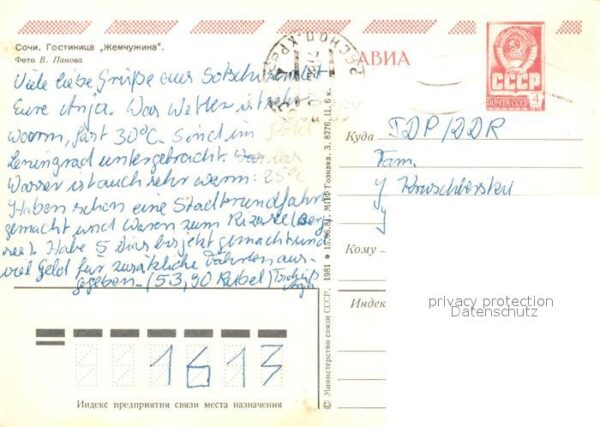 Сочи. Гостиница „Жемчужина".
Фото В. Панова
АВИА
СССР
ПОЧТА СССР
4
Viele liebe Grüße aus Sotschi sendet
Eure Anja. Das Wetter ist sehr
warm, fast 30°C. Sind im Hotel
Leningrad untergebracht. Das
Wasser ist auch sehr warm: 25°C
Haben schon eine Stadtrundfahrt
gemacht und waren zum Rizasee (Berg-
see). Habe 5 Dias bis jetzt gemacht und
viel Geld für zusätzliche Fahrten aus-
gegeben - (53,90 Rubel) Tschüß
Anja
Куда
ГДР/DDR
Fam.
Кому
Индекс
© Министерство связи СССР. 1981 МПФ Гознака. З. 8276. Ц. 6 к.
privacy protection
Datenschutz
1613
Индекс предприятия связи места назначения